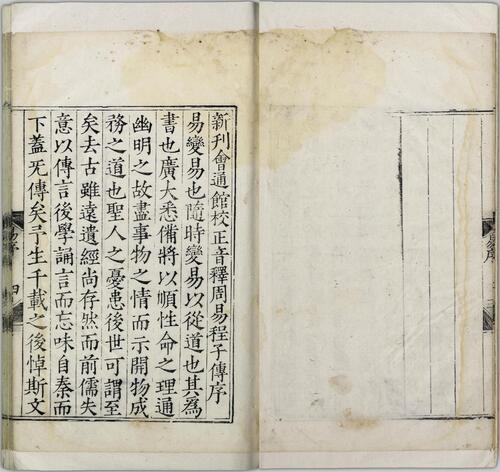 新刊會通館校正音釋周易程子傳序
易變易也隨時變易以從道也其為
書也廣大悉備將以順性命之理通
幽明之故盡事物之情而示開物成
務之道也聖人之憂患後世可謂至
矣去古雖遠遺經尚存然而前儒失
意以傳言後學誦言而忘味自秦而
下蓋无傳矣予生千載之後悼斯文